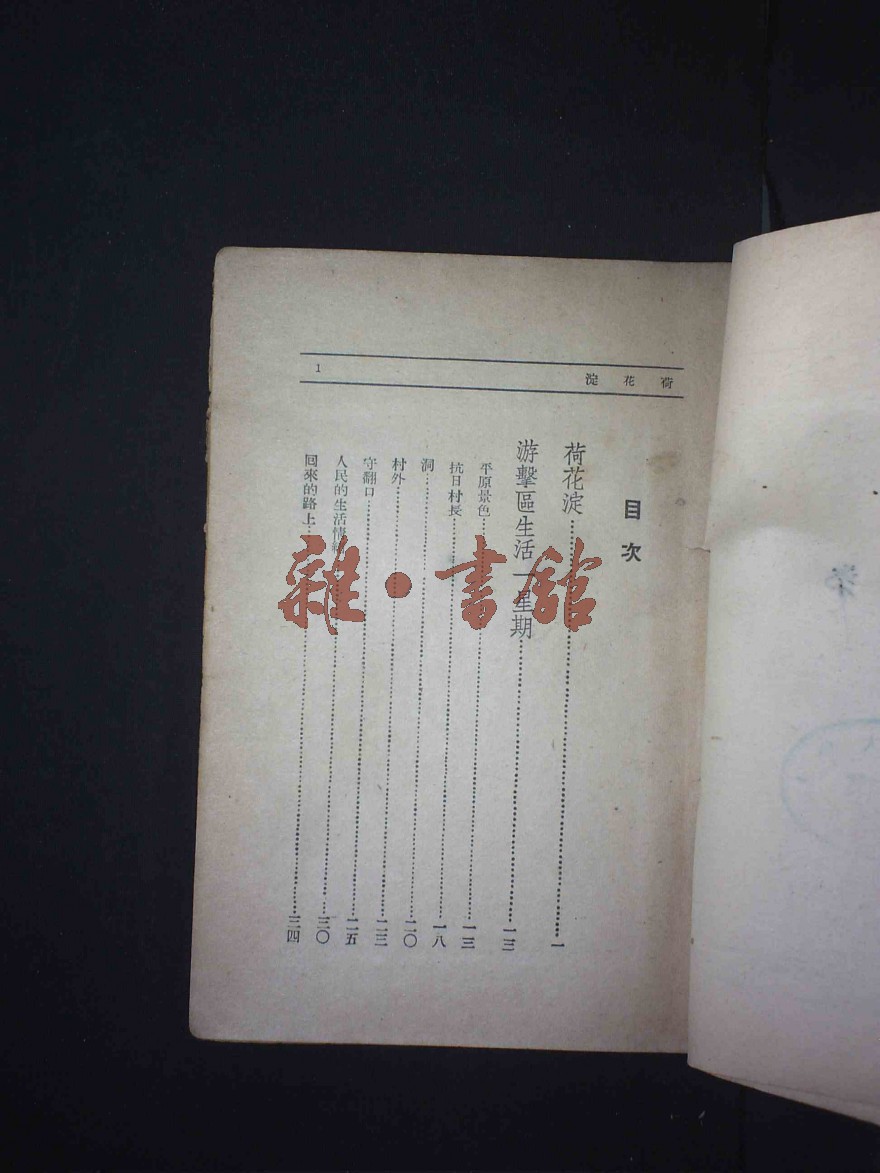 荷花淀
1
目次
荷花淀……一
游擊區生活一星期……一三
平原景色……一三
抗日村長……一八
洞……二〇
村外……二三
守翻口……二五
人民的生活情……三〇
囘來的路上……三四
雜·書舘